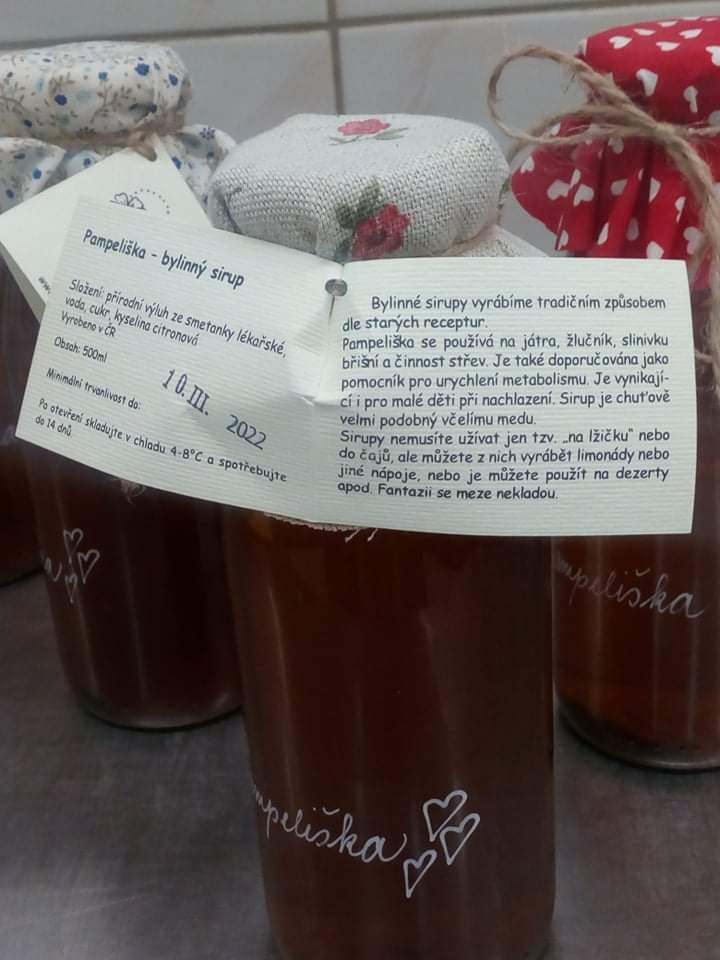 Pampeliška - bylinný sirup
Složení: přírodní výluh ze smetanky lékařské,
voda, cukr, kyselina citronová
Vyrobeno v ČR
Obsah: 500ml
Minimální trvanlivost do:
10.III. 2022
Po otevření skladujte v chladu 4-8°C a spotřebujte
do 14 dnů.
Bylinné sirupy vyrábíme tradičním způsobem
dle starých receptur.
Pampeliška se používá na játra, žlučník, slinivku
břišní a činnost střev. Je také doporučována jako
pomocník pro urychlení metabolismu. Je vynikají-
cí i pro malé děti při nachlazení. Sirup je chuťově
velmi podobný včelímu medu.
Sirupy nemusíte užívat jen tzv. „na lžičku" nebo
do čajů, ale můžete z nich vyrábět limonády nebo
jiné nápoje, nebo je můžete použít na dezerty
apod. Fantazii se meze nekladou.
mpeliška
mpeliška